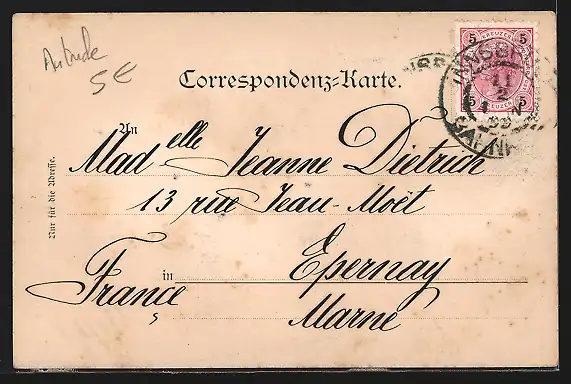 Autriche
5€
5 KREUZER 5
5 KREUZER 5
INNSBRUCK
11
2
Correspondenz-Karte.
An
Madelle Jeanne Dietrich
13 rue Jean-Moët
in Epernay
France Marne
Nur für die Adresse.